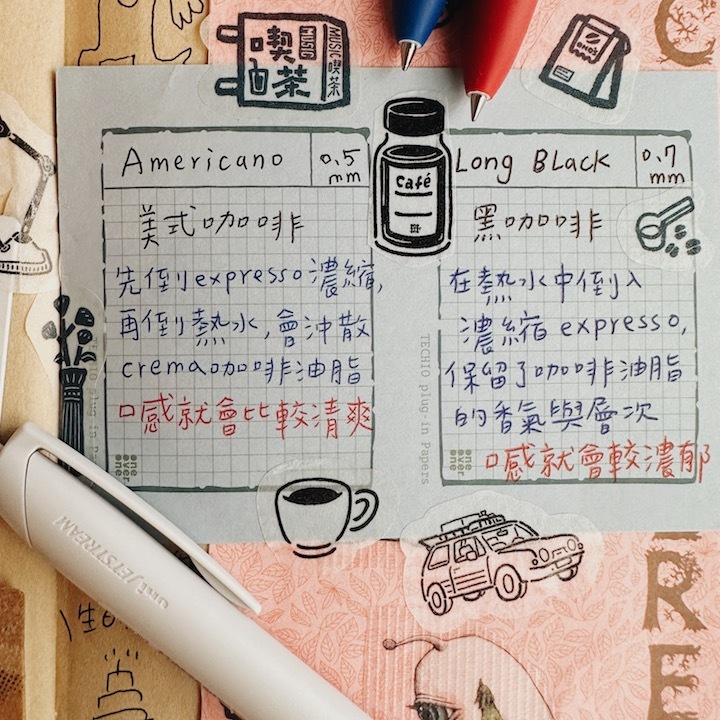 喫茶
MUSIC
MUSIC喫茶
Americano
0.5
mm
美式咖啡
先倒expresso濃縮,
再倒熱水,會沖散
crema咖啡油脂
口感就會比較清爽
one
over
one
Café
Long BLack
0.7
mm
黑咖啡
在熱水中倒入
濃縮 expresso,
保留了咖啡油脂
的香氣與層次
口感就會較濃郁
one
over
one
TECHIO plug-in Papers
uni JETSTREAM
C
R
E